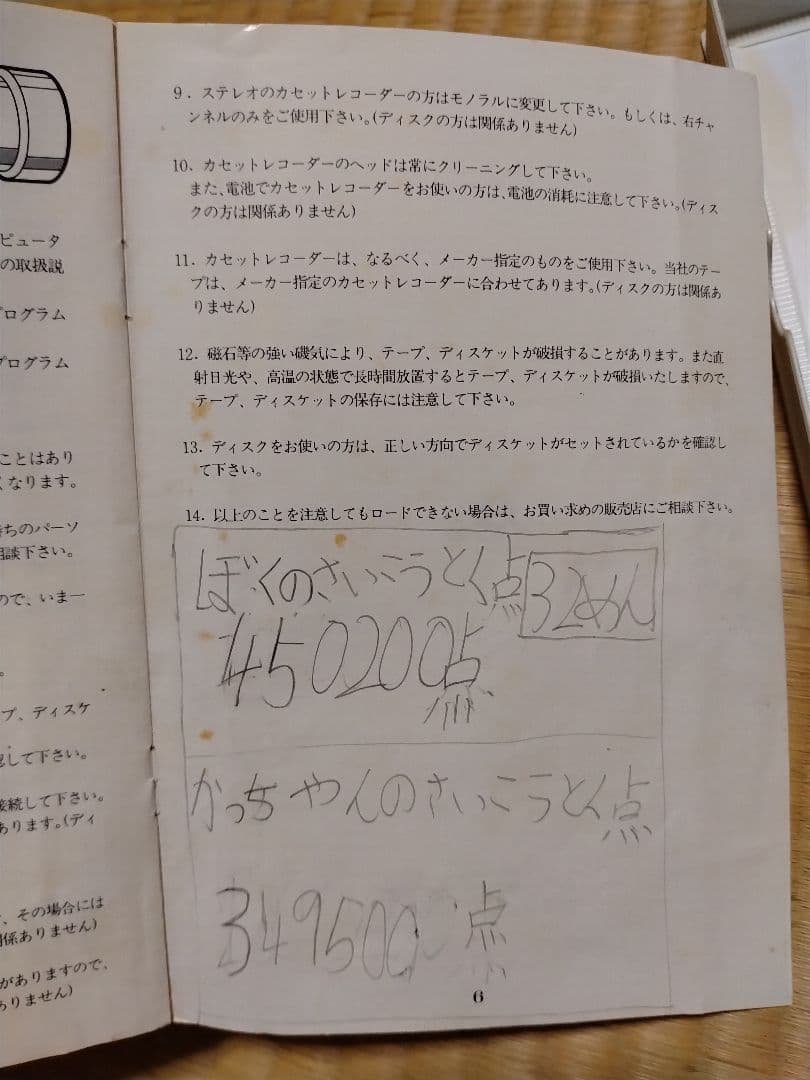 ピュータ
の取扱説
プログラム
プログラム
ことはあり
くなります。
ちのパーソ
相談下さい。
ので、いま一
。
プ、ディスケ
認して下さい。
接続して下さい。
あります。(ディ
、その場合には
関係ありません)
がありますので、
ありません)
9．ステレオのカセットレコーダーの方はモノラルに変更して下さい。もしくは、右チャ
ンネルのみをご使用下さい。(ディスクの方は関係ありません)
10．カセットレコーダーのヘッドは常にクリーニングして下さい。
また、電池でカセットレコーダーをお使いの方は、電池の消耗に注意して下さい。(ディス
クの方は関係ありません)
11．カセットレコーダーは、なるべく、メーカー指定のものをご使用下さい。当社のテー
プは、メーカー指定のカセットレコーダーに合わせてあります。(ディスクの方は関係あ
りません)
12．磁石等の強い磁気により、テープ、ディスケットが破損することがあります。また直
射日光や、高温の状態で長時間放置するとテープ、ディスケットが破損いたしますので、
テープ、ディスケットの保存には注意して下さい。
13．ディスクをお使いの方は、正しい方向でディスケットがセットされているかを確認し
て下さい。
14．以上のことを注意してもロードできない場合は、お買い求めの販売店にご相談下さい。
ぼくのさいこうとく点 32めん
450200点
かっちやんのさいこうとく点
349500点
6